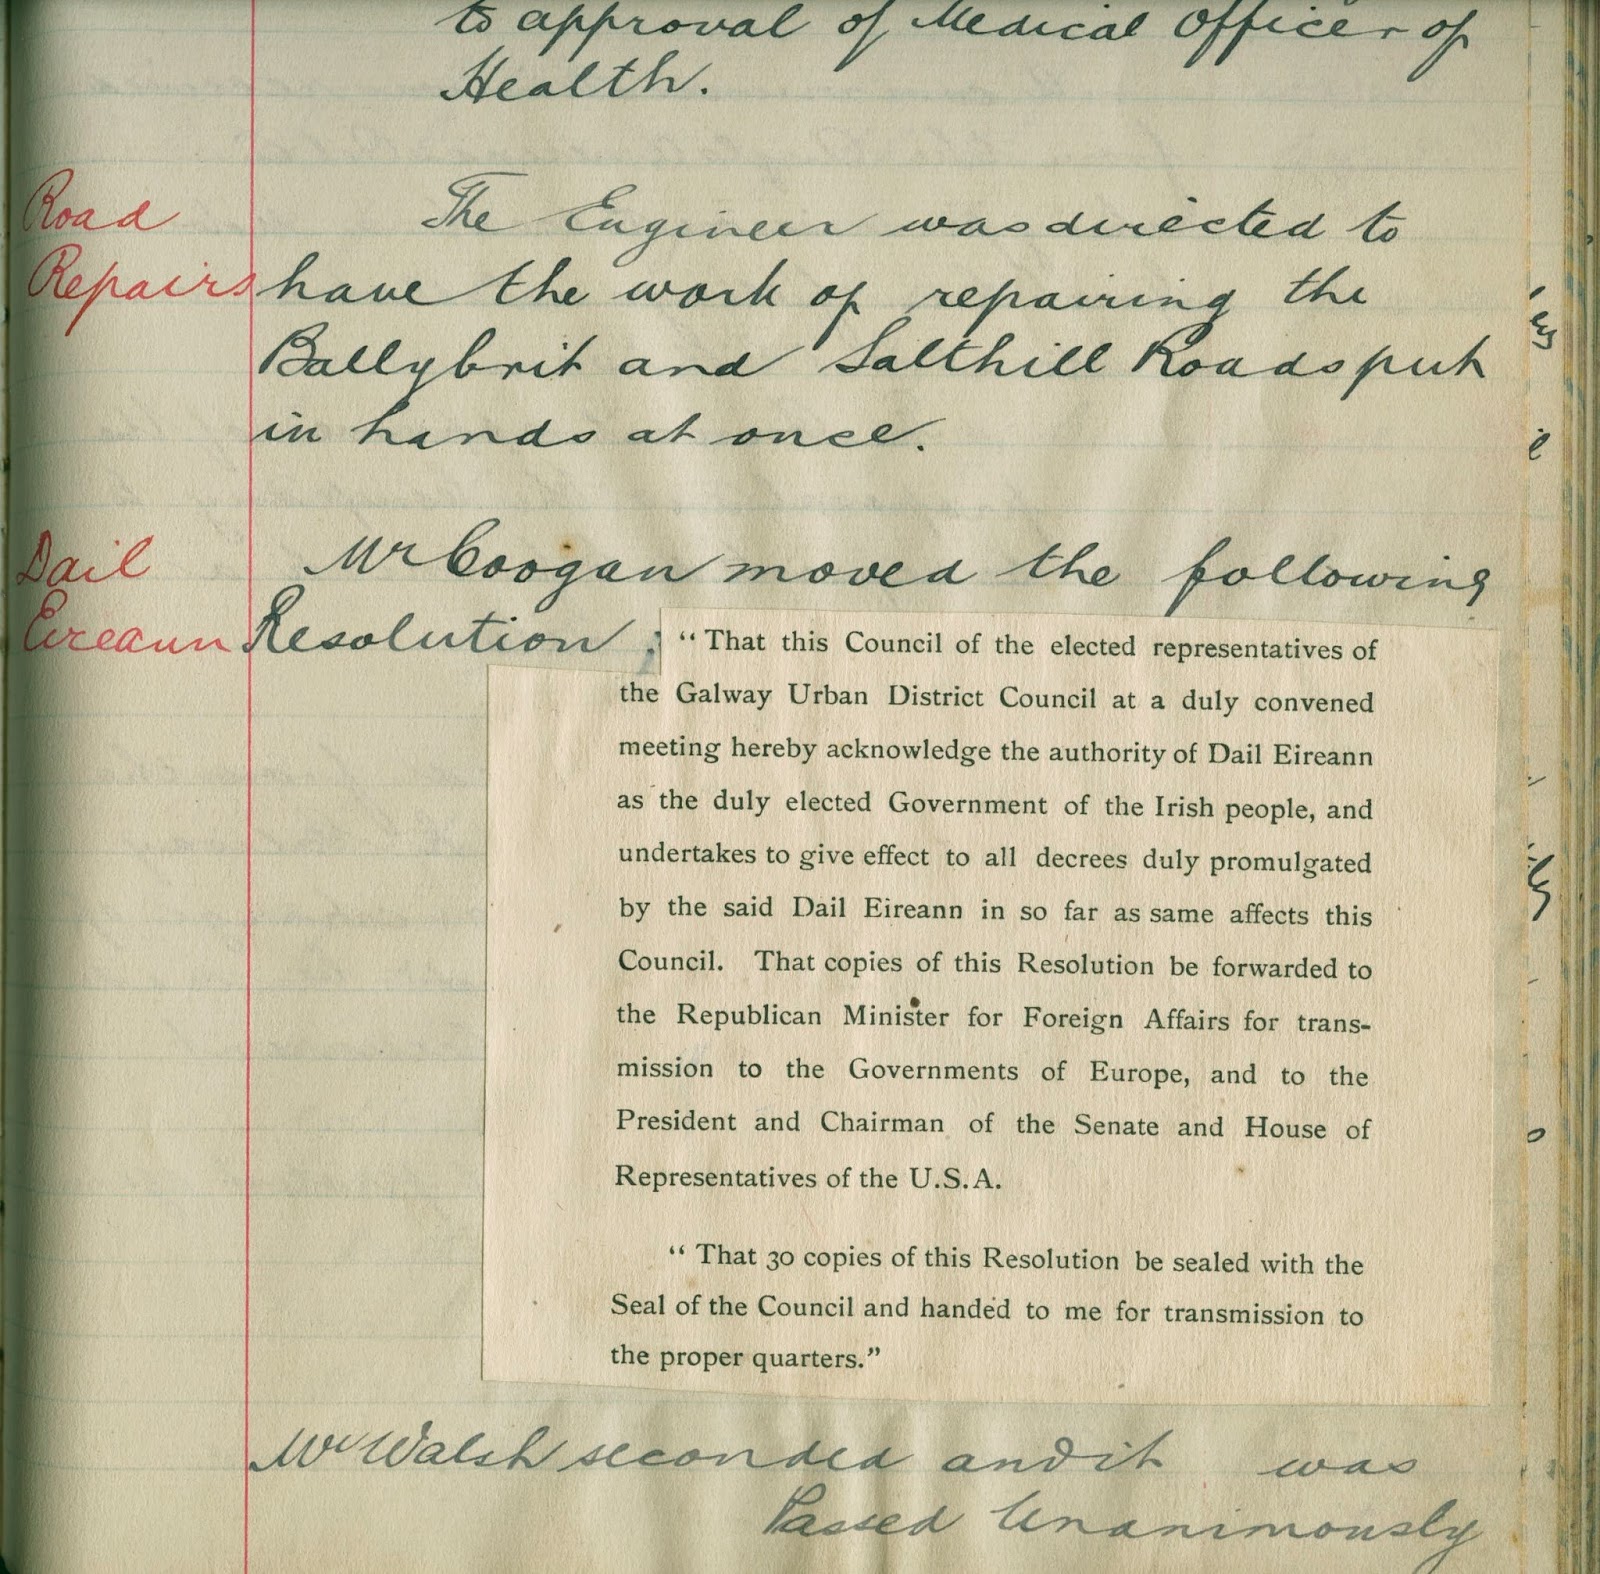 to approval of Medical Officer of
Health.
Road
Repairs
The Engineer was directed to
have the work of repairing the
Ballybrit and Salthill Roads put
in hands at once.
Dail
Eireann
Mr Coogan moved the following
Resolution :
“ That this Council of the elected representatives of
the Galway Urban District Council at a duly convened
meeting hereby acknowledge the authority of Dail Eireann
as the duly elected Government of the Irish people, and
undertakes to give effect to all decrees duly promulgated
by the said Dail Eireann in so far as same affects this
Council. That copies of this Resolution be forwarded to
the Republican Minister for Foreign Affairs for trans-
mission to the Governments of Europe, and to the
President and Chairman of the Senate and House of
Representatives of the U.S.A.
“ That 30 copies of this Resolution be sealed with the
Seal of the Council and handed to me for transmission to
the proper quarters.”
Mr Walsh seconded and it was
Passed Unanimously